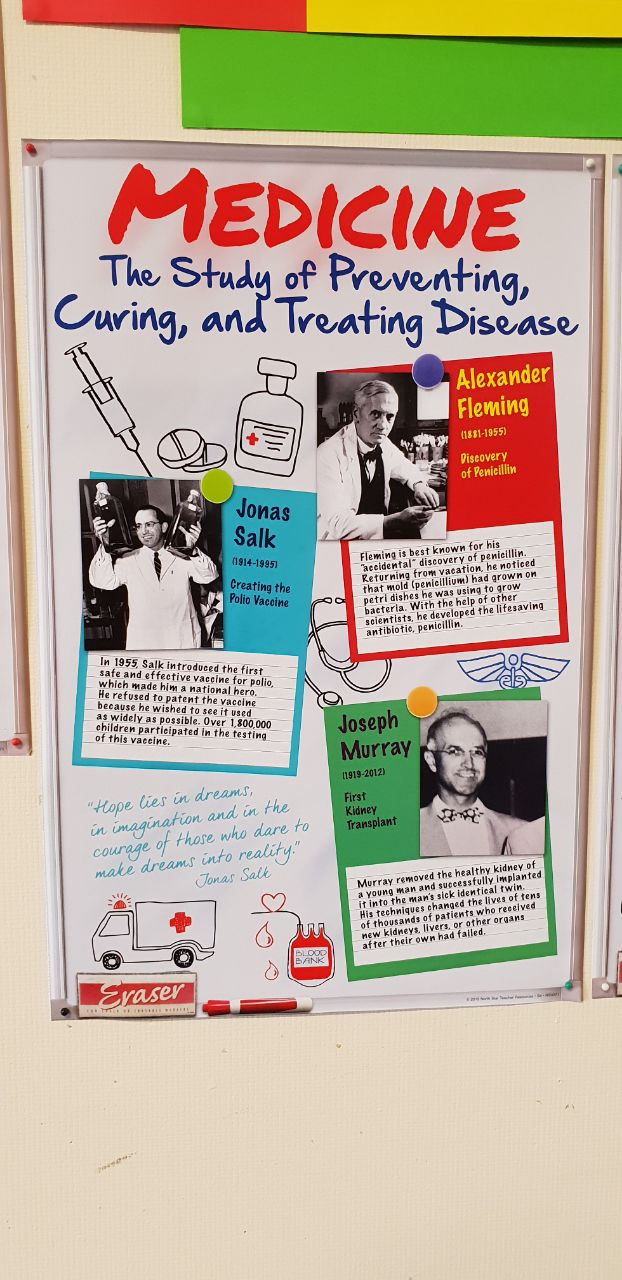 MEDICINE
The Study of Preventing,
Curing, and Treating Disease
Alexander
Fleming
(1881-1955)
Discovery
of Penicillin
Fleming is best known for his
"accidental" discovery of penicillin.
Returning from vacation, he noticed
that mold (penicillium) had grown on
petri dishes he was using to grow
bacteria. With the help of other
scientists, he developed the lifesaving
antibiotic, penicillin.
Jonas
Salk
(1914-1995)
Creating the
Polio Vaccine
In 1955, Salk introduced the first
safe and effective vaccine for polio,
which made him a national hero.
He refused to patent the vaccine
because he wished to see it used
as widely as possible. Over 1,800,000
children participated in the testing
of this vaccine.
Joseph
Murray
(1919-2012)
First
Kidney
Transplant
Murray removed the healthy kidney of
a young man and successfully implanted
it into the man's sick identical twin.
His techniques changed the lives of tens
of thousands of patients who received
new kidneys, livers, or other organs
after their own had failed.
"Hope lies in dreams,
in imagination and in the
courage of those who dare to
make dreams into reality."
Jonas Salk
BLOOD
BANK
Eraser
North Star Teacher Resources